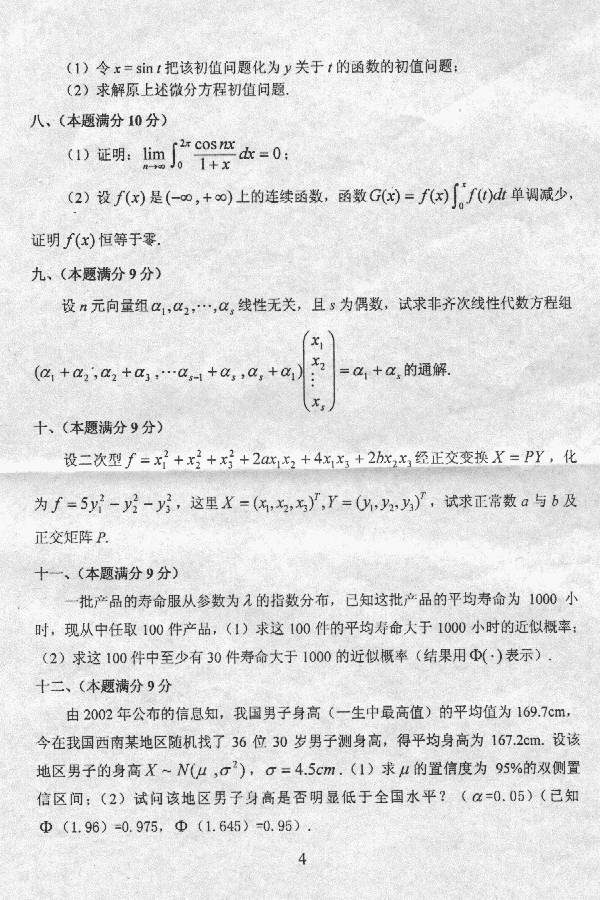 （1）令 x = sin t 把该初值问题化为 y 关于 t 的函数的初值问题；
（2）求解原上述微分方程初值问题.
八、（本题满分 10 分）
（1）证明：lim_{n→∞} ∫_0^{2π} \frac{cos nx}{1+x} dx = 0；
（2）设 f(x) 是 (−∞, +∞) 上的连续函数，函数 G(x) = f(x)∫_0^x f(t)dt 单调减少，
证明 f(x) 恒等于零.
九、（本题满分 9 分）
设 n 元向量组 α₁,α₂,⋯,αₛ 线性无关，且 s 为偶数，试求非齐次线性代数方程组
(α₁ + α₂, α₂ + α₃, ⋯αₛ₋₁ + αₛ, αₛ + α₁) (x₁ x₂ ⋮ xₛ) = α₁ + αₛ 的通解.
十、（本题满分 9 分）
设二次型 f = x₁² + x₂² + x₃² + 2ax₁x₂ + 4x₁x₃ + 2bx₂x₃ 经正交变换 X = PY，化
为 f = 5y₁² − y₂² − y₃²，这里 X = (x₁,x₂,x₃)ᵀ, Y = (y₁,y₂,y₃)ᵀ，试求正常数 a 与 b 及
正交矩阵 P.
十一、（本题满分 9 分）
一批产品的寿命服从参数为 λ 的指数分布，已知这批产品的平均寿命为 1000 小
时，现从中任取 100 件产品，（1）求这 100 件的平均寿命大于 1000 小时的近似概率；
（2）求这 100 件中至少有 30 件寿命大于 1000 的近似概率（结果用 Φ(·) 表示）.
十二、（本题满分 9 分
由 2002 年公布的信息知，我国男子身高（一生中最高值）的平均值为 169.7cm，
今在我国西南某地区随机找了 36 位 30 岁男子测身高，得平均身高为 167.2cm. 设该
地区男子的身高 X ~ N(μ ,σ²)，σ = 4.5cm .（1）求 μ 的置信度为 95%的双侧置
信区间；（2）试问该地区男子身高是否明显低于全国水平？（ α=0.05）（已知
Φ（1.96）=0.975，Φ（1.645）=0.95）.
4